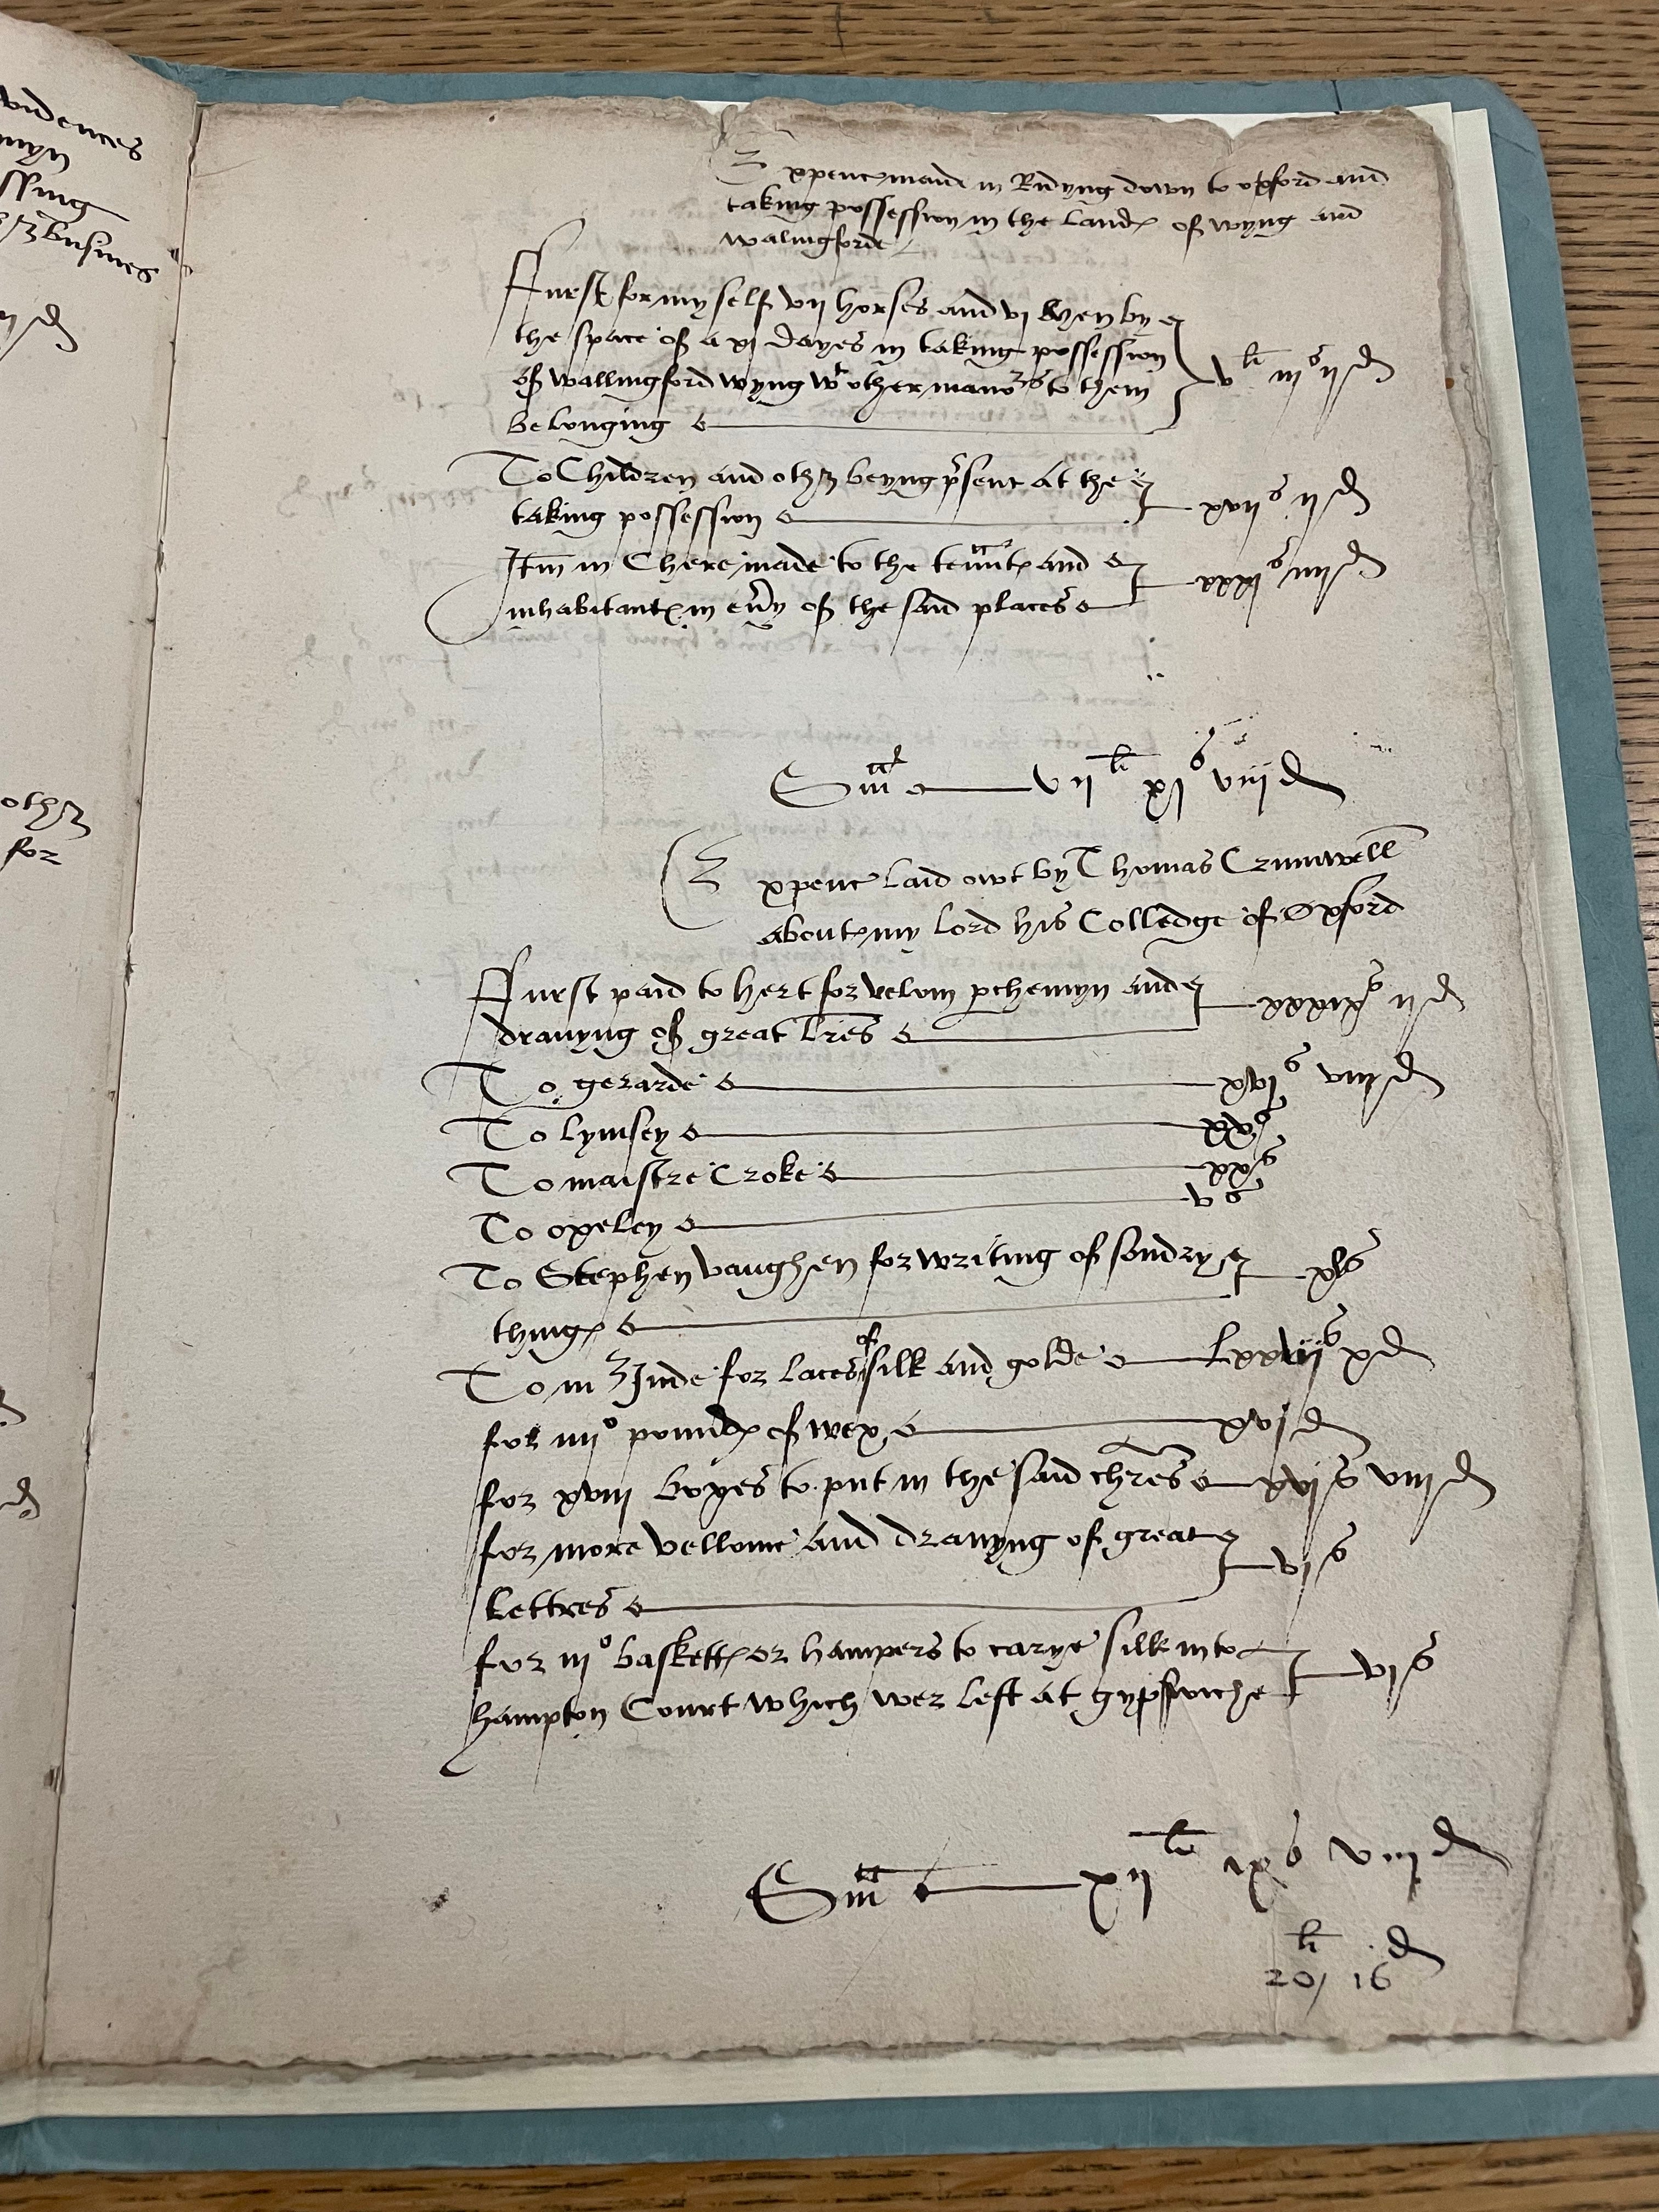 vidences
myn
ssing
busines
oth
for
Expenc made in Ridyng down to oxford and
taking possession in the Land of wyng and
walingforde
Furst for my self vij horses and vj men by
the space of a xj dayes in taking possession
of wallingford wyng wt other manors to them
belonging
To Children and oth beyng psent at the
taking possession xvijs ijd
Itm in Chere made to the tennt and
inhabitant in evy of the said places
Sma vijli xjs viijd
Expenc laid owt by Thomas Crumwell
about my lord his Colledge of Oxford
Furst paid to hert for velom pchemyn and
drawyng of great lres
To gerarde xvjs viijd
To lymsey xxs
To maistre Croke xxs
To oxeley vs
To Stephen vaughen for writing of sondry xls
thing
To m Jnde for laces of silk and golde lxxvijs xd
for iiijo pound of wex xvjd
for xviij boxes to put in the said chres xvjs viijd
for more vellome and drawyng of great vjs
lettres
for iijo baskett or hampers to carye silk into vjs
hampton Court which wer left at gypswiche
Sma xijli ixs viijd
li d
20/ 16